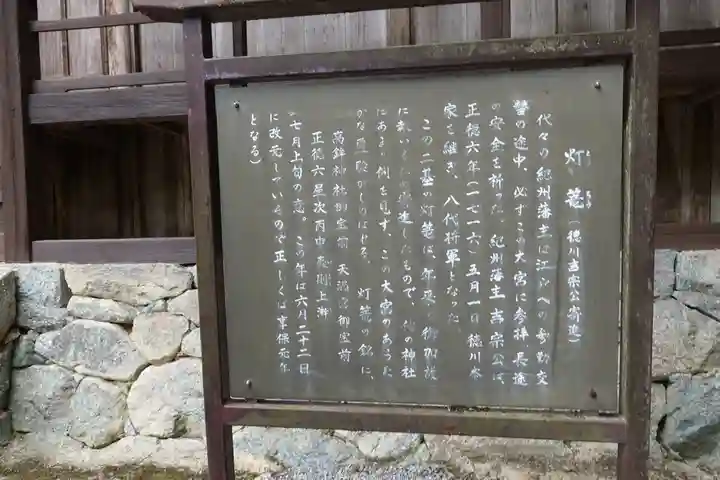 灯籠（徳川吉宗公寄進）
代々の紀州藩主は江戸への参勤交
替の途中、必ずこの大宮に参拝長途
の安全を祈った。紀州藩主吉宗公は、
正徳六年（一七一六）五月一日徳川本
家を継ぎ、八代将軍となった。
この二基の灯籠は、年来の御加護
に いて 進したもので、他の神社
にあまり例を見ず、この大宮のあらた
かな霊験がしのばせる。灯籠の銘に、
高鉾神社御宝前 天満宮御宝前
正徳六星次丙申 上澣
（七月上旬の意。この年は六月二十二日
に改元しているので正しくは享保元年
となる）